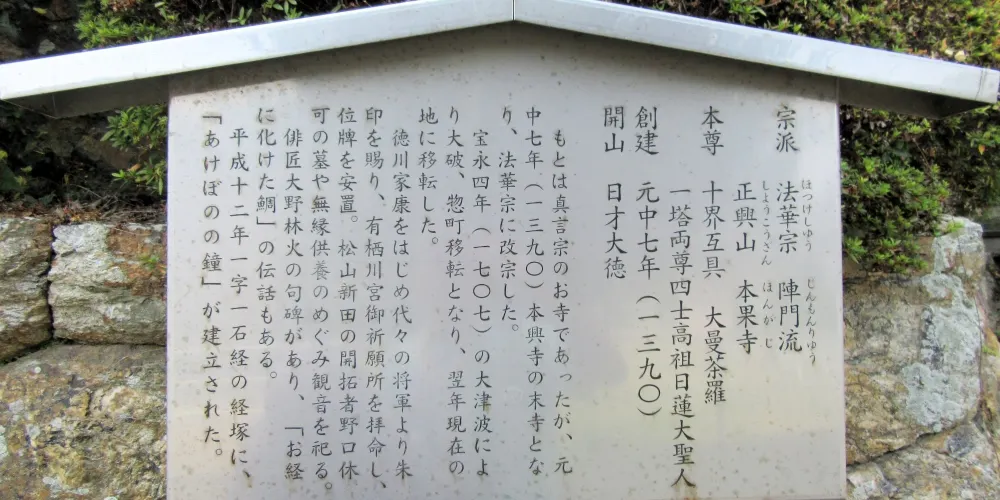 宗派　法華宗　陣門流
ほつけしゆう　じんもんりゆう
正興山　本果寺
しようこうさん　ほんがじ
本尊　十界互具　大曼荼羅
一塔両尊四士高祖日蓮大聖人
創建　元中七年（一三九〇）
開山　日才大徳
もとは真言宗のお寺であったが、元
中七年（一三九〇）本興寺の末寺とな
り、法華宗に改宗した。
宝永四年（一七〇七）の大津波によ
り大破、惣町移転となり、翌年現在の
地に移転した。
徳川家康をはじめ代々の将軍より朱
印を賜り、有栖川宮御祈願所を拝命し、
位牌を安置。松山新田の開拓者野口休
可の墓や無縁供養のめぐみ観音を祀る。
俳匠大野林火の句碑があり、「お経
に化けた鯛」の伝話もある。
平成十二年一字一石経の経塚に、
「あけぼのの鐘」が建立された。